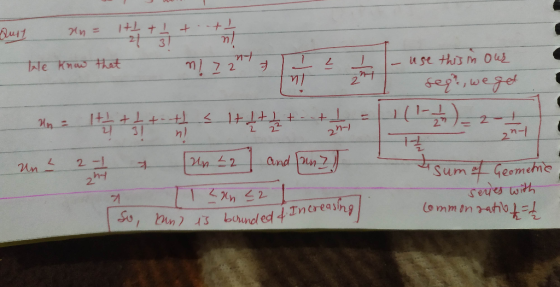 Ques xn = 1+1/2! + 1/3! + ··· + 1/n!
We know that n! ≥ 2^(n-1) ⇒ 1/n! ≤ 1/2^(n-1) – use this in our
seqn., we get
xn = 1+1/2! + 1/3! + ··· + 1/n! ≤ 1+1/2+1/2^2 + ··· + 1/2^(n-1) = 1(1-1/2^n)/(1-1/2) = 2 - 1/2^(n-1)
xn ≤ 2-1/2^(n-1) ⇒ xn ≤ 2 and xn ≥ 1
→ Sum of Geometric
series with
common ratio r=1/2
⇒ 1 ≤ xn ≤ 2
So, (xn) is bounded & Increasing